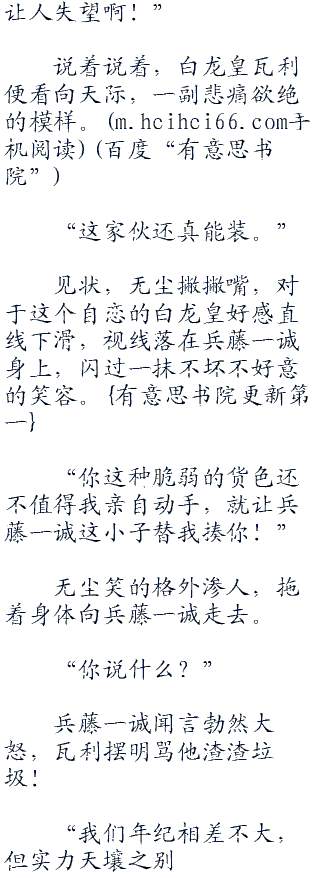 让人失望啊！”
说着说着，白龙皇瓦利
便看向天际，一副悲痛欲绝
的模样。(m.hcihci66.com手
机阅读)(百度“有意思书
院”)
“这家伙还真能装。”
见状，无尘撇撇嘴，对
于这个自恋的白龙皇好感直
线下滑，视线落在兵藤一诚
身上，闪过一抹不坏不好意
的笑容。{有意思书院更新第
一}
“你这种脆弱的货色还
不值得我亲自动手，就让兵
藤一诚这小子替我揍你！”
无尘笑的格外渗人，拖
着身体向兵藤一诚走去。
“你说什么？”
兵藤一诚闻言勃然大
怒，瓦利摆明骂他渣渣垃
圾！
“我们年纪相差不大，
但实力天壤之别